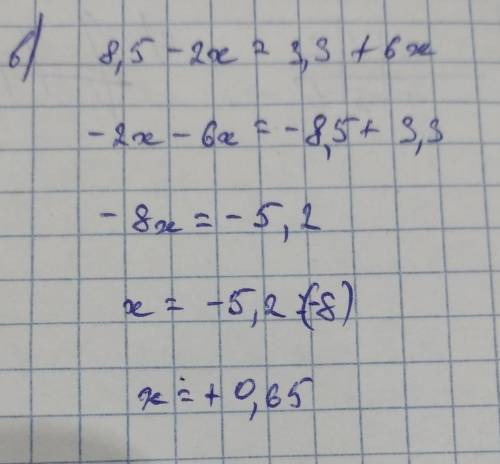 б) 8,5 - 2x = 3,3 + 6x
-2x - 6x = -8,5 + 3,3
-8x = -5,2
x = -5,2 : (-8)
x = + 0,65